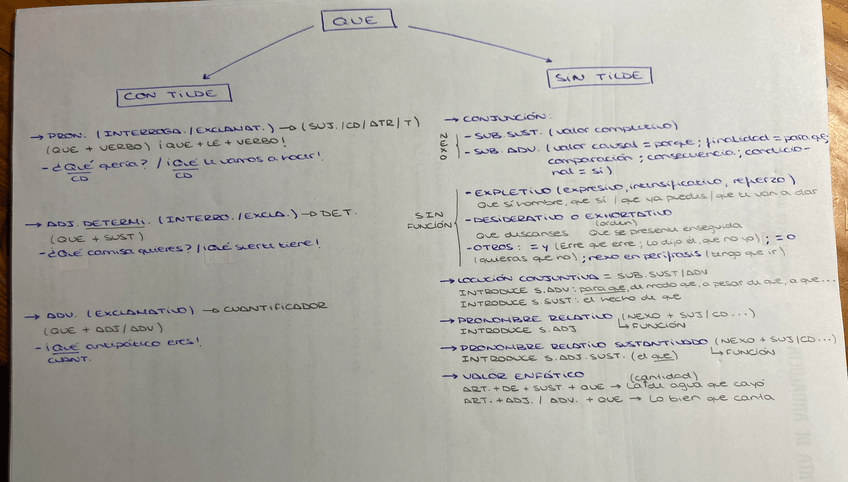 QUE
CON TILDE
→ PRON. (INTERROGA./EXCLAMAT.) → (SUJ./CD/ATR/T)
(QUE + VERBO) ¡QUE + LE + VERBO!
- ¿Qué quería? / ¡Qué le vamos a hacer!
CD CD
→ ADJ. DETERMI. (INTERRO./EXCLA.) → DET.
(QUE + SUST)
- ¿Qué camisa quieres? / ¡Qué suerte tiene!
→ ADV. (EXCLAMATIVO) → CUANTIFICADOR
(QUE + ADJ/ADV)
- ¡Qué antipático eres!
CUANT.
SIN TILDE
→ CONJUNCIÓN:
NEXO
- SUB. SUST. (valor completivo)
- SUB. ADV. (valor causal = porque; finalidad = para que;
comparación; consecuencia; condicio-
nal = si)
SIN FUNCIÓN
- EXPLETIVO (expresivo, intensificativo, refuerzo)
Que sí hombre, que sí / que ya puedes / que te van a dar
- DESIDERATIVO O EXHORTATIVO
(orden)
Que descanses Que se presente enseguida
- OTROS: = y (Erre que erre; Lo dijo él, que no yo); = o
(quieras que no); nexo en perífrasis (tengo que ir)
→ LOCUCIÓN CONJUNTIVA = SUB. SUST/ADV
INTRODUCE S. ADV: para que, de modo que, a pesar de que, a que...
INTRODUCE S. SUST: el hecho de que
→ PRONOMBRE RELATIVO (NEXO + SUJ/CD...)
INTRODUCE S. ADJ ↳ FUNCIÓN
→ PRONOMBRE RELATIVO SUSTANTIVADO (NEXO + SUJ/CD...)
INTRODUCE S. ADJ. SUST. (el que) ↳ FUNCIÓN
→ VALOR ENFÁTICO (cantidad)
ART. + DE + SUST + QUE → La de agua que cayó
ART. + ADJ. / ADV. + QUE → Lo bien que canta